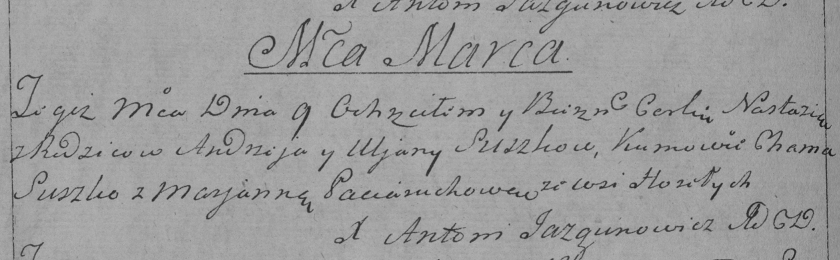 X Antoni Jazgunowicz AD CD.
Mca Marca.
Tegiż Mca Dnia 9 Ochrzciłem y Bierzm Corkę Nastazią
z Rodzicow Andrzeja y Uljany Suszkow, Kumowie Chama
Suszko z Marjanną ze wsi
X Antoni Jazgunowicz AD CD.